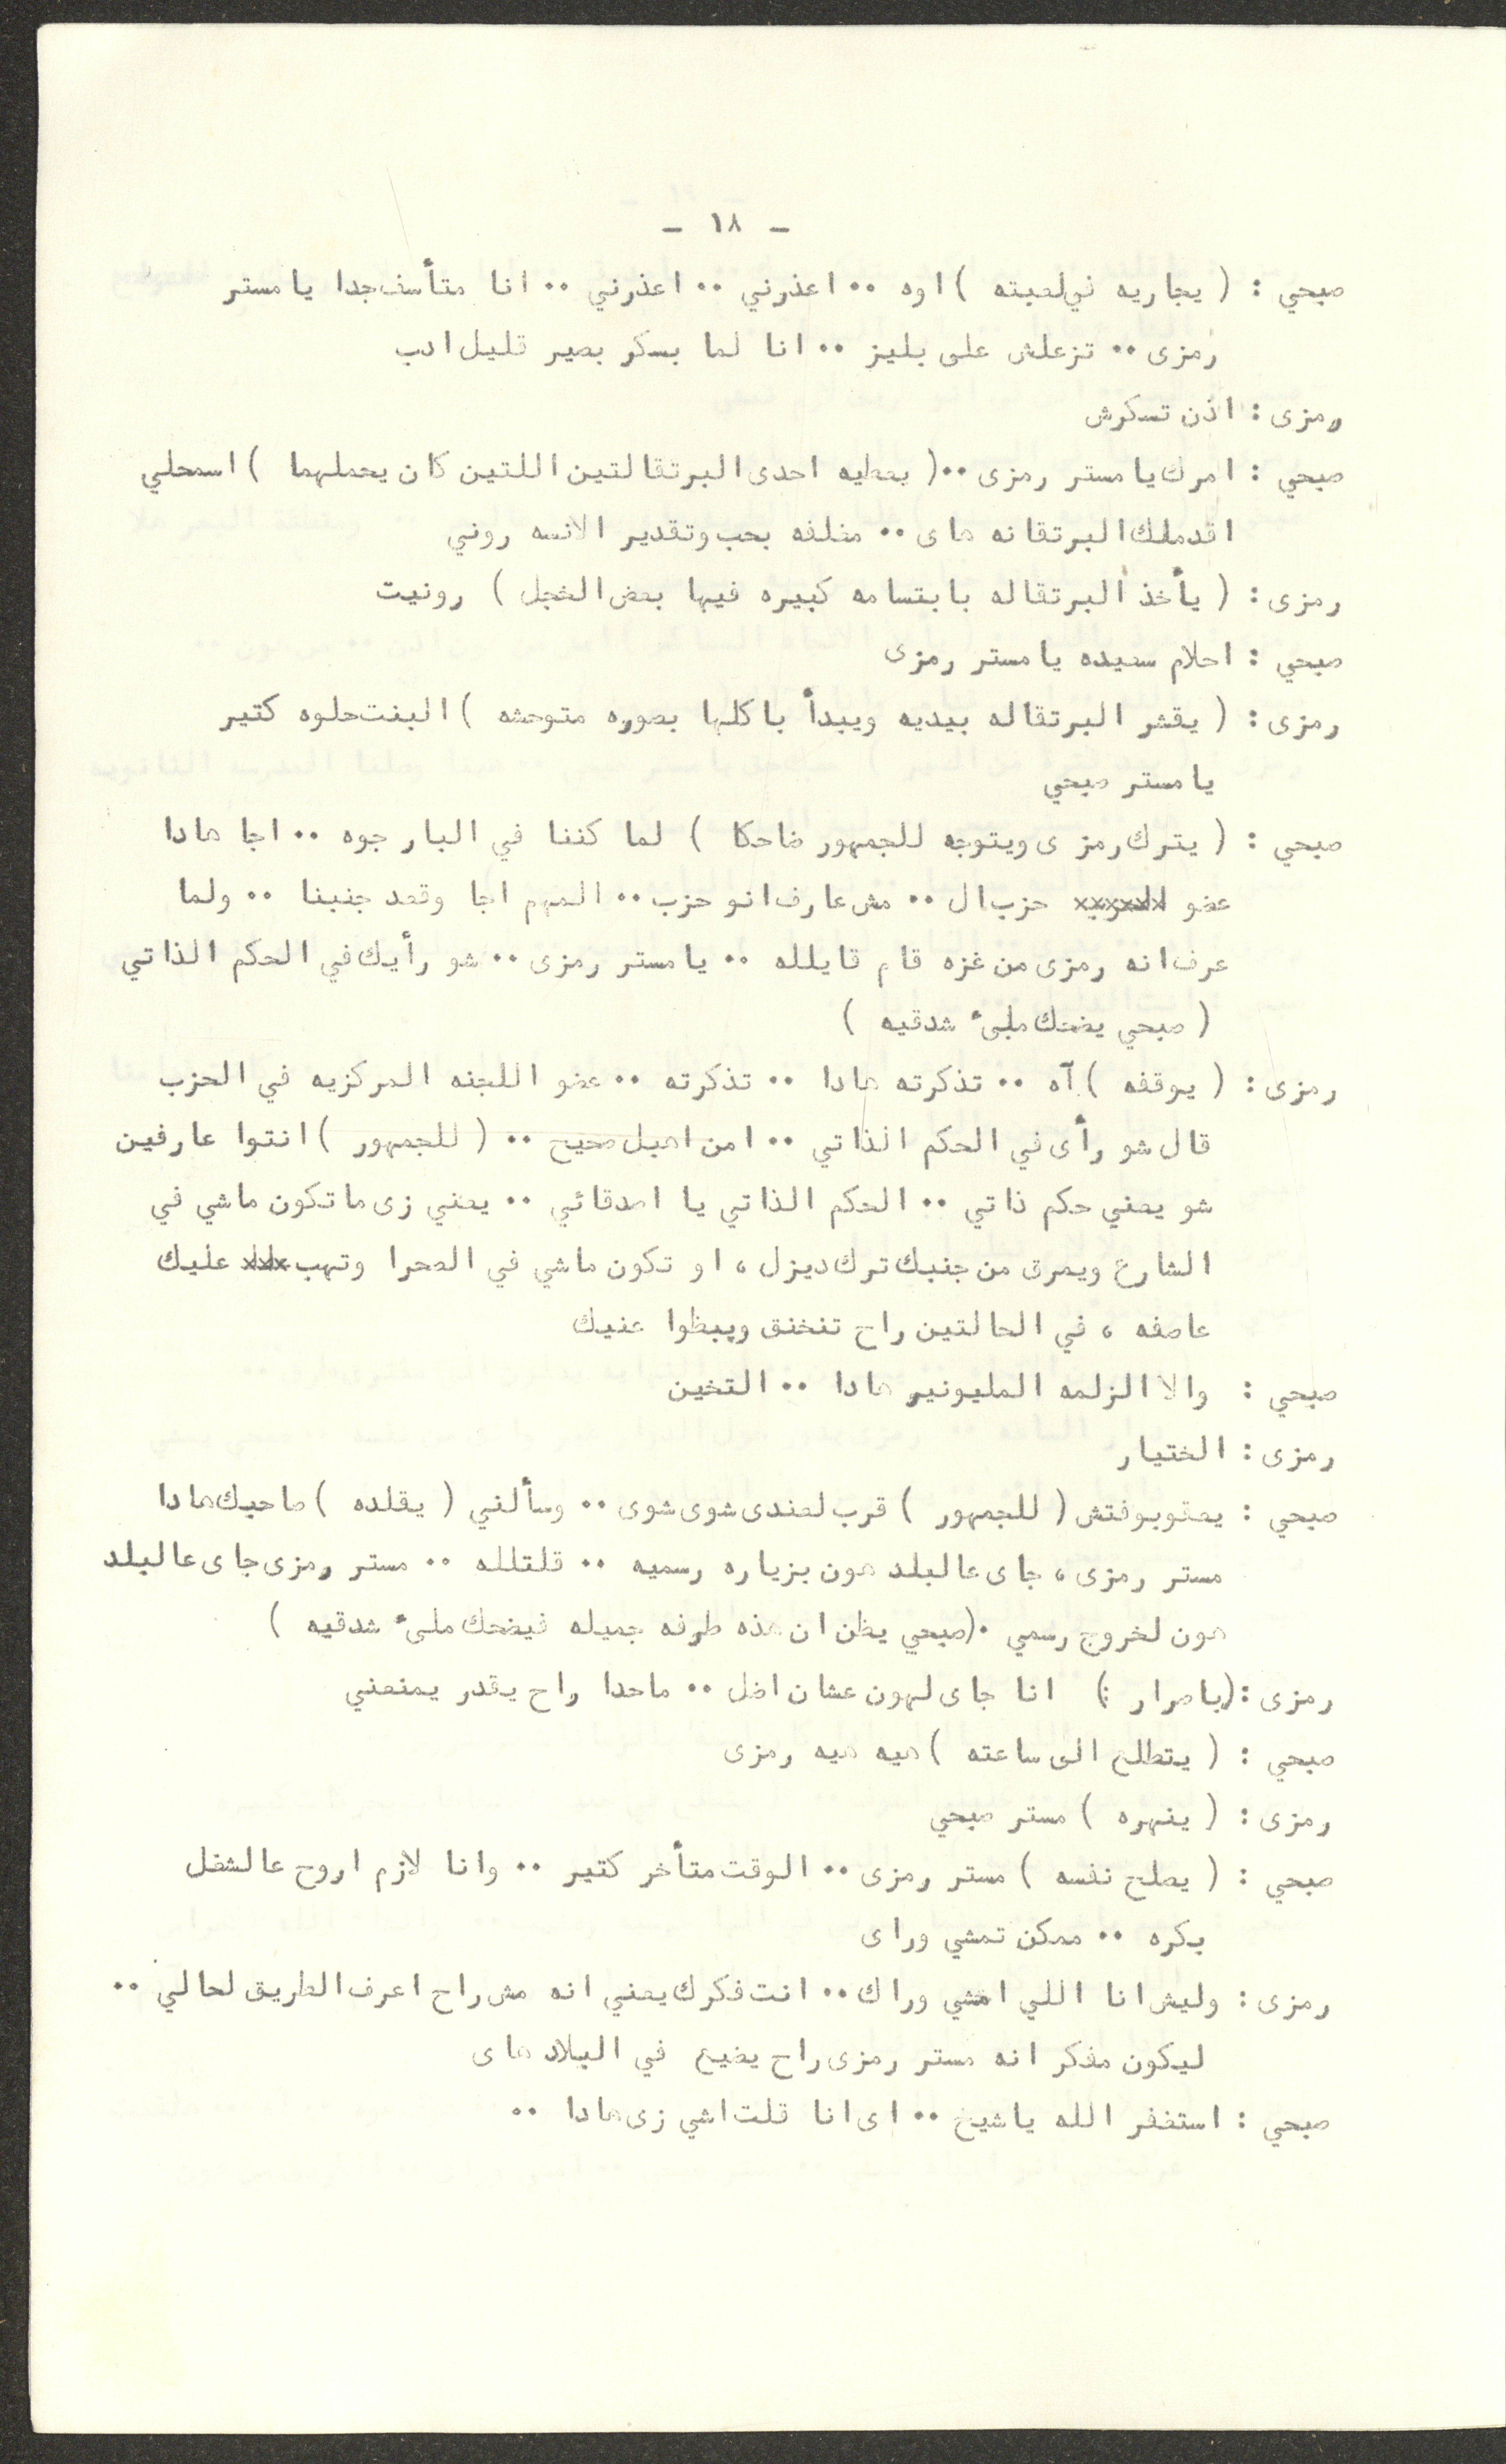 - ١٨ -
صبحي : ( يجاريه في لعبته ) اوه ٠٠ اعذرني ٠٠ اعذرني ٠٠ انا متأسف جدا يا مستر
رمزى ٠٠ تزعلش على بليز ٠٠ انا لما بسكر بصير قليل ادب
رمزى : اذن تسكرش
صبحي : امرك يا مستر رمزى ٠٠( يعطيه احدى البرتقالتين اللتين كان يحملهما ) اسمحلي
اقدملك البرتقانه هاى ٠٠ مغلفه بحب وتقدير الانسه روني
رمزى : ( يأخذ البرتقاله بابتسامه كبيره فيها بعض الخجل ) رونيت
صبحي : احلام سعيده يا مستر رمزى
رمزى : ( يقشر البرتقاله بيديه ويبدأ باكلها بصوره متوحشه ) البنت حلوه كتير
يا مستر صبحي
صبحي : ( يترك رمزى ويتوجه للجمهور ضاحكا ) لما كننا في البار جوه ٠٠ اجا هادا
عضو حزب ال ٠٠ مش عارف انو حزب ٠٠ المهم اجا وقعد جنبنا ٠٠ ولما
عرف انه رمزى من غزه قام قايلله ٠٠ يا مستر رمزى ٠٠ شو رأيك في الحكم الذاتي
( صبحي يضحك ملىء شدقيه )
رمزى : ( يوقفه ) آه ٠٠ تذكرته هادا ٠٠ تذكرته ٠٠ عضو اللجنه المركزيه في الحزب
قال شو رأى في الحكم الذاتي ٠٠ امن اهبل صحيح ٠٠ ( للجمهور ) انتوا عارفين
شو يعني حكم ذاتي ٠٠ الحكم الذاتي يا اصدقائي ٠٠ يعني زى ما تكون ماشي في
الشارع ويمرق من جنبك ترك ديزل ، او تكون ماشي في الصحرا وتهب عليك
عاصفه ، في الحالتين راح تنخنق ويبظوا عنيك
صبحي : والا الزلمه المليونير هادا ٠٠ التخين
رمزى : الختيار
صبحي : يعقوبوفتش ( للجمهور ) قرب لعندى شوى شوى ٠٠ وسألني ( يقلده ) صاحبك هادا
مستر رمزى ، جاى عالبلد هون بزياره رسميه ٠٠ قلتلله ٠٠ مستر رمزى جاى عالبلد
هون لخروج رسمي ٠(صبحي يظن ان هذه طرفه جميله فيضحك ملىء شدقيه )
رمزى :(باصرار :) انا جاى لهون عشان اضل ٠٠ ماحدا راح يقدر يمنعني
صبحي : ( يتطلع الى ساعته ) هيه هيه رمزى
رمزى : ( ينهره ) مستر صبحي
صبحي : ( يصلح نفسه ) مستر رمزى ٠٠ الوقت متأخر كتير ٠٠ وانا لازم اروح عالشغل
بكره ٠٠ ممكن تمشي وراى
رمزى : وليش انا اللي امشي وراك ٠٠ انت فكرك يعني انه مش راح اعرف الطريق لحالي ٠٠
ليكون مفكر انه مستر رمزى راح يضيع في البلاد هاى
صبحي : استغفر الله يا شيخ ٠٠ اى انا قلت اشي زى هادا ٠٠